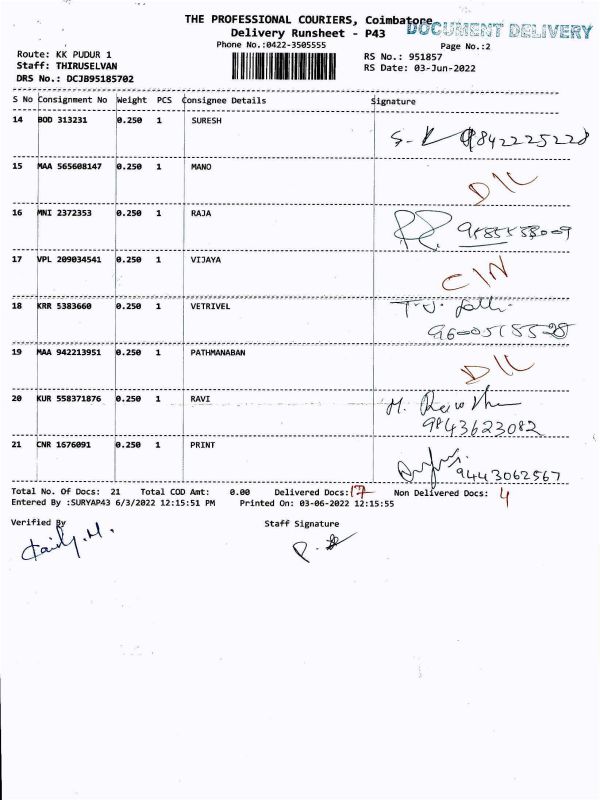 THE PROFESSIONAL COURIERS, Coimbatore
DOCUMENT DELIVERY
Delivery Runsheet - P43
Phone No.:0422-3505555 Page No.:2
Route: KK PUDUR 1 RS No.: 951857
Staff: THIRUSELVAN RS Date: 03-Jun-2022
DRS No.: DCJB95185702
S No Consignment No Weight PCS Consignee Details Signature
14 BOD 313231 0.250 1 SURESH 9842225228
15 MAA 565608147 0.250 1 MANO D/L
16 MNI 2372353 0.250 1 RAJA
17 VPL 209034541 0.250 1 VIJAYA C/N
18 KRR 5383660 0.250 1 VETRIVEL
19 MAA 942213951 0.250 1 PATHMANABAN D/L
20 KUR 558371876 0.250 1 RAVI
9843623082
21 CNR 1676091 0.250 1 PRINT 9443062567
Total No. Of Docs: 21 Total COD Amt: 0.00 Delivered Docs: 17 Non Delivered Docs: 4
Entered By :SURYAP43 6/3/2022 12:15:51 PM Printed On: 03-06-2022 12:15:55
Verified By Staff Signature